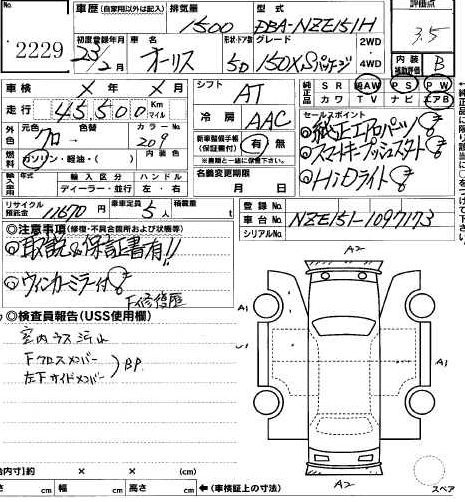 No.
2229
車歴(自家用以外は記入)
排気量
型式
評価点
1500
DBA-NZE151H
3.5
初度登録年月
車名
形状・ドア数
グレード
23/2月
オーリス
5D
150X Sパッケージ
2WD
4WD
内装
補助評価
B
車検 × 年 × 月
シフト
AT
純正品
SR
AW
PS
PW
カワ
TV
ナビ
エアB
走行 45,500 Km
マイル
冷房
AAC
セールスポイント
純正エアロパーツ
スマートキープッシュスタート
HiDライト
外色
元色
色替
カラーNo
クロ
209
新車整備手帳
(保証書付)
有・無
※書類と一緒に保管下さい。
燃料
ガソリン・軽油・( )
内装色
輸入車
輸入区分
ハンドル
ディーラー・並行
左・右
名義変更期限
月 日
リサイクル
預託金
11670円
乗車定員
5人
積載量
t
登録No.
車台No.
NZE151-1097173
シリアルNo.
◎注意事項(修復・不具合箇所および状態等)
取説&保証書有!!
ウィンカーミラー付
F修復歴
◎検査員報告(USS使用欄)
室内ウス汚れ
Fクロスメンバー
左下サイドメンバー
)BP
A2
A1
A1
A2
スペア
(台内寸)約 × × (cm)
さ cm 幅 cm 高さ cm
←(車検証上の寸法)